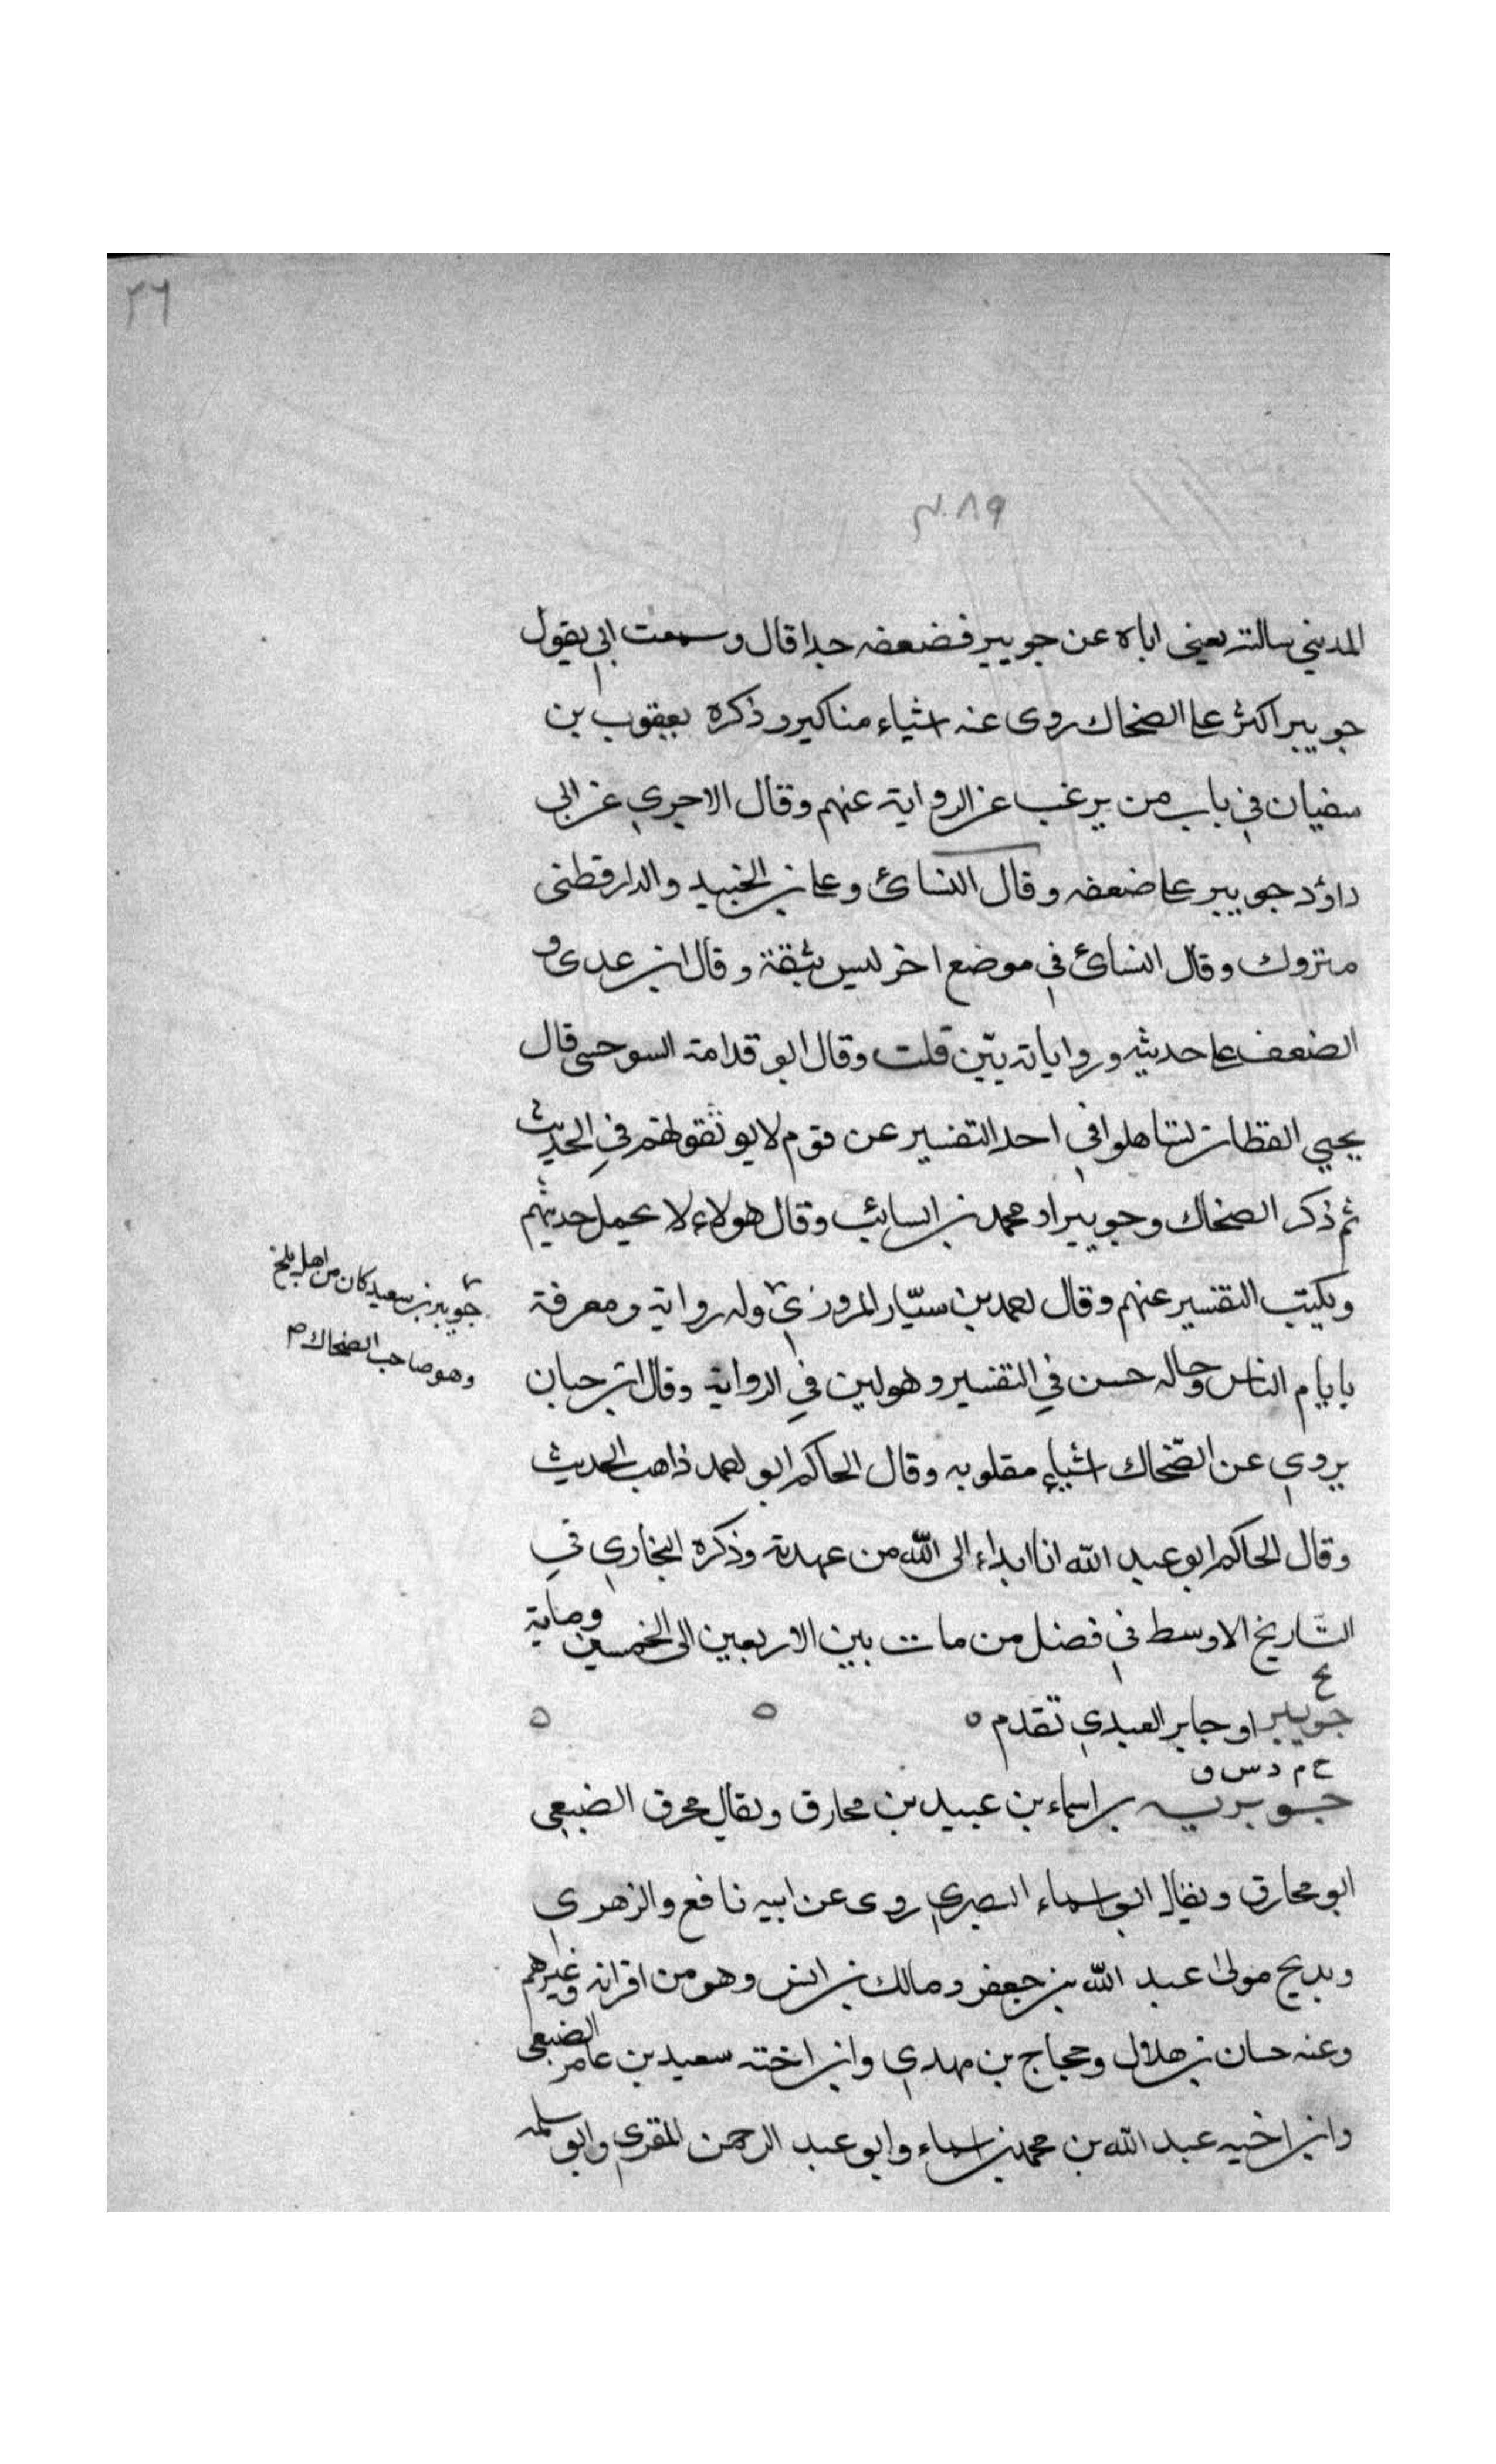 ٢٦
٣٠٨٩
المديني سالته يعني اباه عن جويبر فضعفه جدا قال وسمعت ابي يقول
جويبر اكثر على الضحاك روى عنه اشياء مناكير وذكره يعقوب بن
سفيان في باب من يرغب عن الرواية عنهم وقال الاجري عن ابي
داؤد جويبر على ضعفه وقال النسائ وعلى بن الجنيد والدارقطنى
متروك وقال النسائ في موضع اخر ليس بثقة وقال ابن عدى و
الضعف على حديثه ورواياته بيّن قلت وقال ابو قدامة السرخسى قال
يحيي القطان تساهلوا في اخد التفسير عن قوم لا يوثقونهم في الحديث
ثم ذكر الضحاك وجويبرا ومحمد بن السائب وقال هولاء لا يحمل حديثهم
ويكتب التفسير عنهم وقال احمد بن سيّار المروزي وله رواية ومعرفة
جويبر بن سعيد كان من اهل بلخ
وهو صاحب الضحاك م
بايام الناس وحاله حسن في التفسير وهو لين في الرواية وقال ابن حبان
يروي عن الضّحاك اشياء مقلوبه وقال الحاكم ابو احمد ذاهب الحديث
وقال الحاكم ابو عبد الله انا ابراء الى الله من عهدته وذكره البخاري في
التّاريخ الاوسط في فصل من مات بين الاربعين الى الخمسين وماية
خ
جويبر او جابر العبدي تقدم ٥ ٥ ٥
خ م د س ق
جويرية بن اسماء بن عبيد بن مخارق ويقال مخراق الضبعي
ابو مخارق ويقال ابو اسماء البصري روى عن ابيه نافع والزهري
وبديح مولى عبد الله بن جعفر ومالك بن انس وهو من اقرانه وغيرهم
وعنه حسان بن هلال وحجاج بن مهدي وابن اخته سعيد بن عامر الضبعى
وابن اخيه عبد الله بن محمد بن اسماء وابو عبد الرحمن المقري وابو سلمه